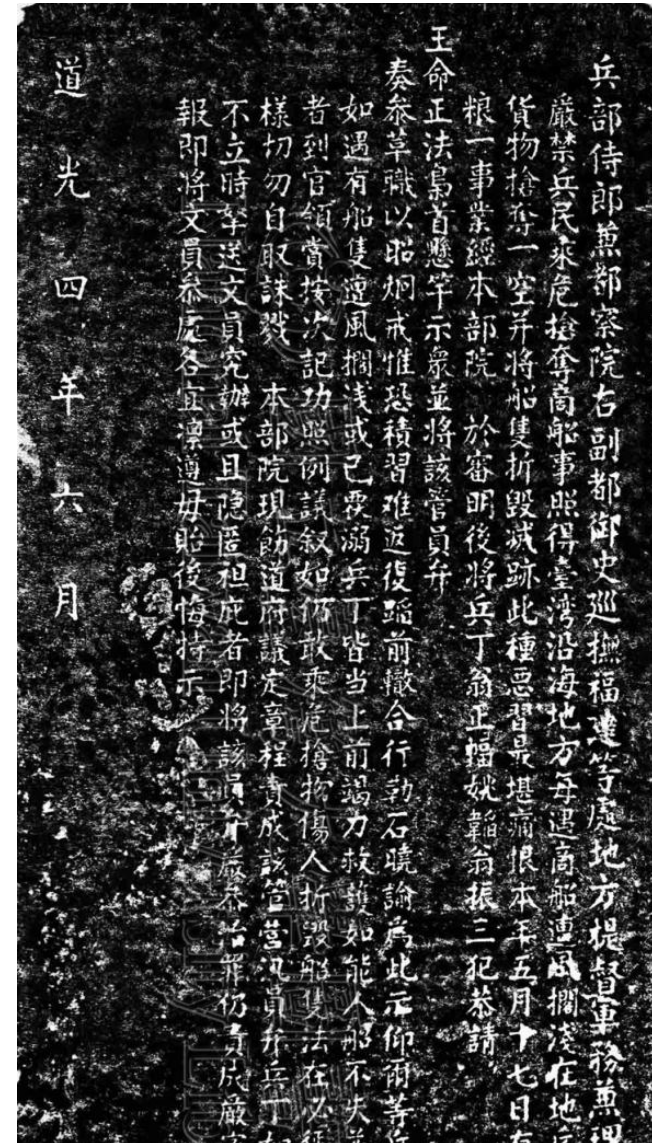 兵部侍郎兼都察院右副都御史巡撫福建等處地方提督軍務兼理
嚴禁兵民乘危搶奪商船事照得臺灣沿海地方每遇商船遭風擱淺在地
貨物搶奪一空并將船隻折毀滅跡此種惡習最堪痛恨本年五月十七日
粮一事業經本部院 於審明後將兵丁翁正幅姚韜翁振三犯恭請
王命正法梟首懸竿示眾並將該管員弁
奏叅革職以昭炯戒惟恐積習难返復蹈前轍合行勒石曉諭為此示仰爾等
如遇有船隻遭風擱淺或已覆溺兵丁皆当上前竭力救護如能人船不失
者到官領賞按次記功照例議叙如仍敢乘危搶掳傷人折毀船隻法在必
様切勿自取誅戮 本部院現飭道府議定章程責成該管營汛員弁兵丁
不立時拏送文員究辦或且隐匿袒庇者即將該員弁嚴叅治罪仍責成嚴
報即將文員叅處各宜凛遵毋貽後悔特示
道光四年六月